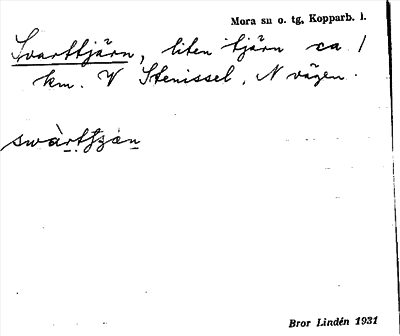 Mora sn o. tg, Kopparb. l.
Svarttjärn, liten tjärn ca 1
km. V Stenissel, N vägen.
Bror Lindén 1931